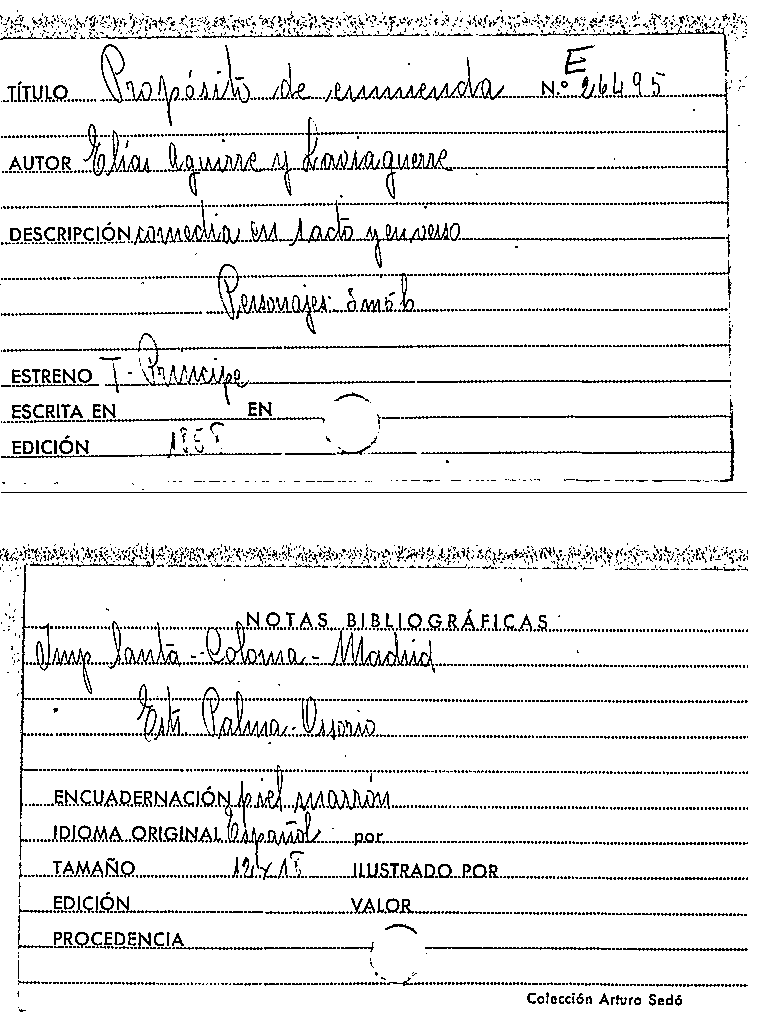 TÍTULO Propósito de enmienda N.º E 26495
AUTOR Elías Aguirre y Laviaguerre
DESCRIPCIÓN comedia en 1 acto y en verso
Personajes: 8m 5h
ESTRENO T - Principe
ESCRITA EN EN
EDICIÓN
NOTAS BIBLIOGRÁFICAS
Imp Santa - Coloma - Madrid
Palma - Ossorio
ENCUADERNACIÓN piel marrón
IDIOMA ORIGINAL Español por
TAMAÑO ILUSTRADO POR
EDICIÓN VALOR
PROCEDENCIA
Colección Arturo Sedó